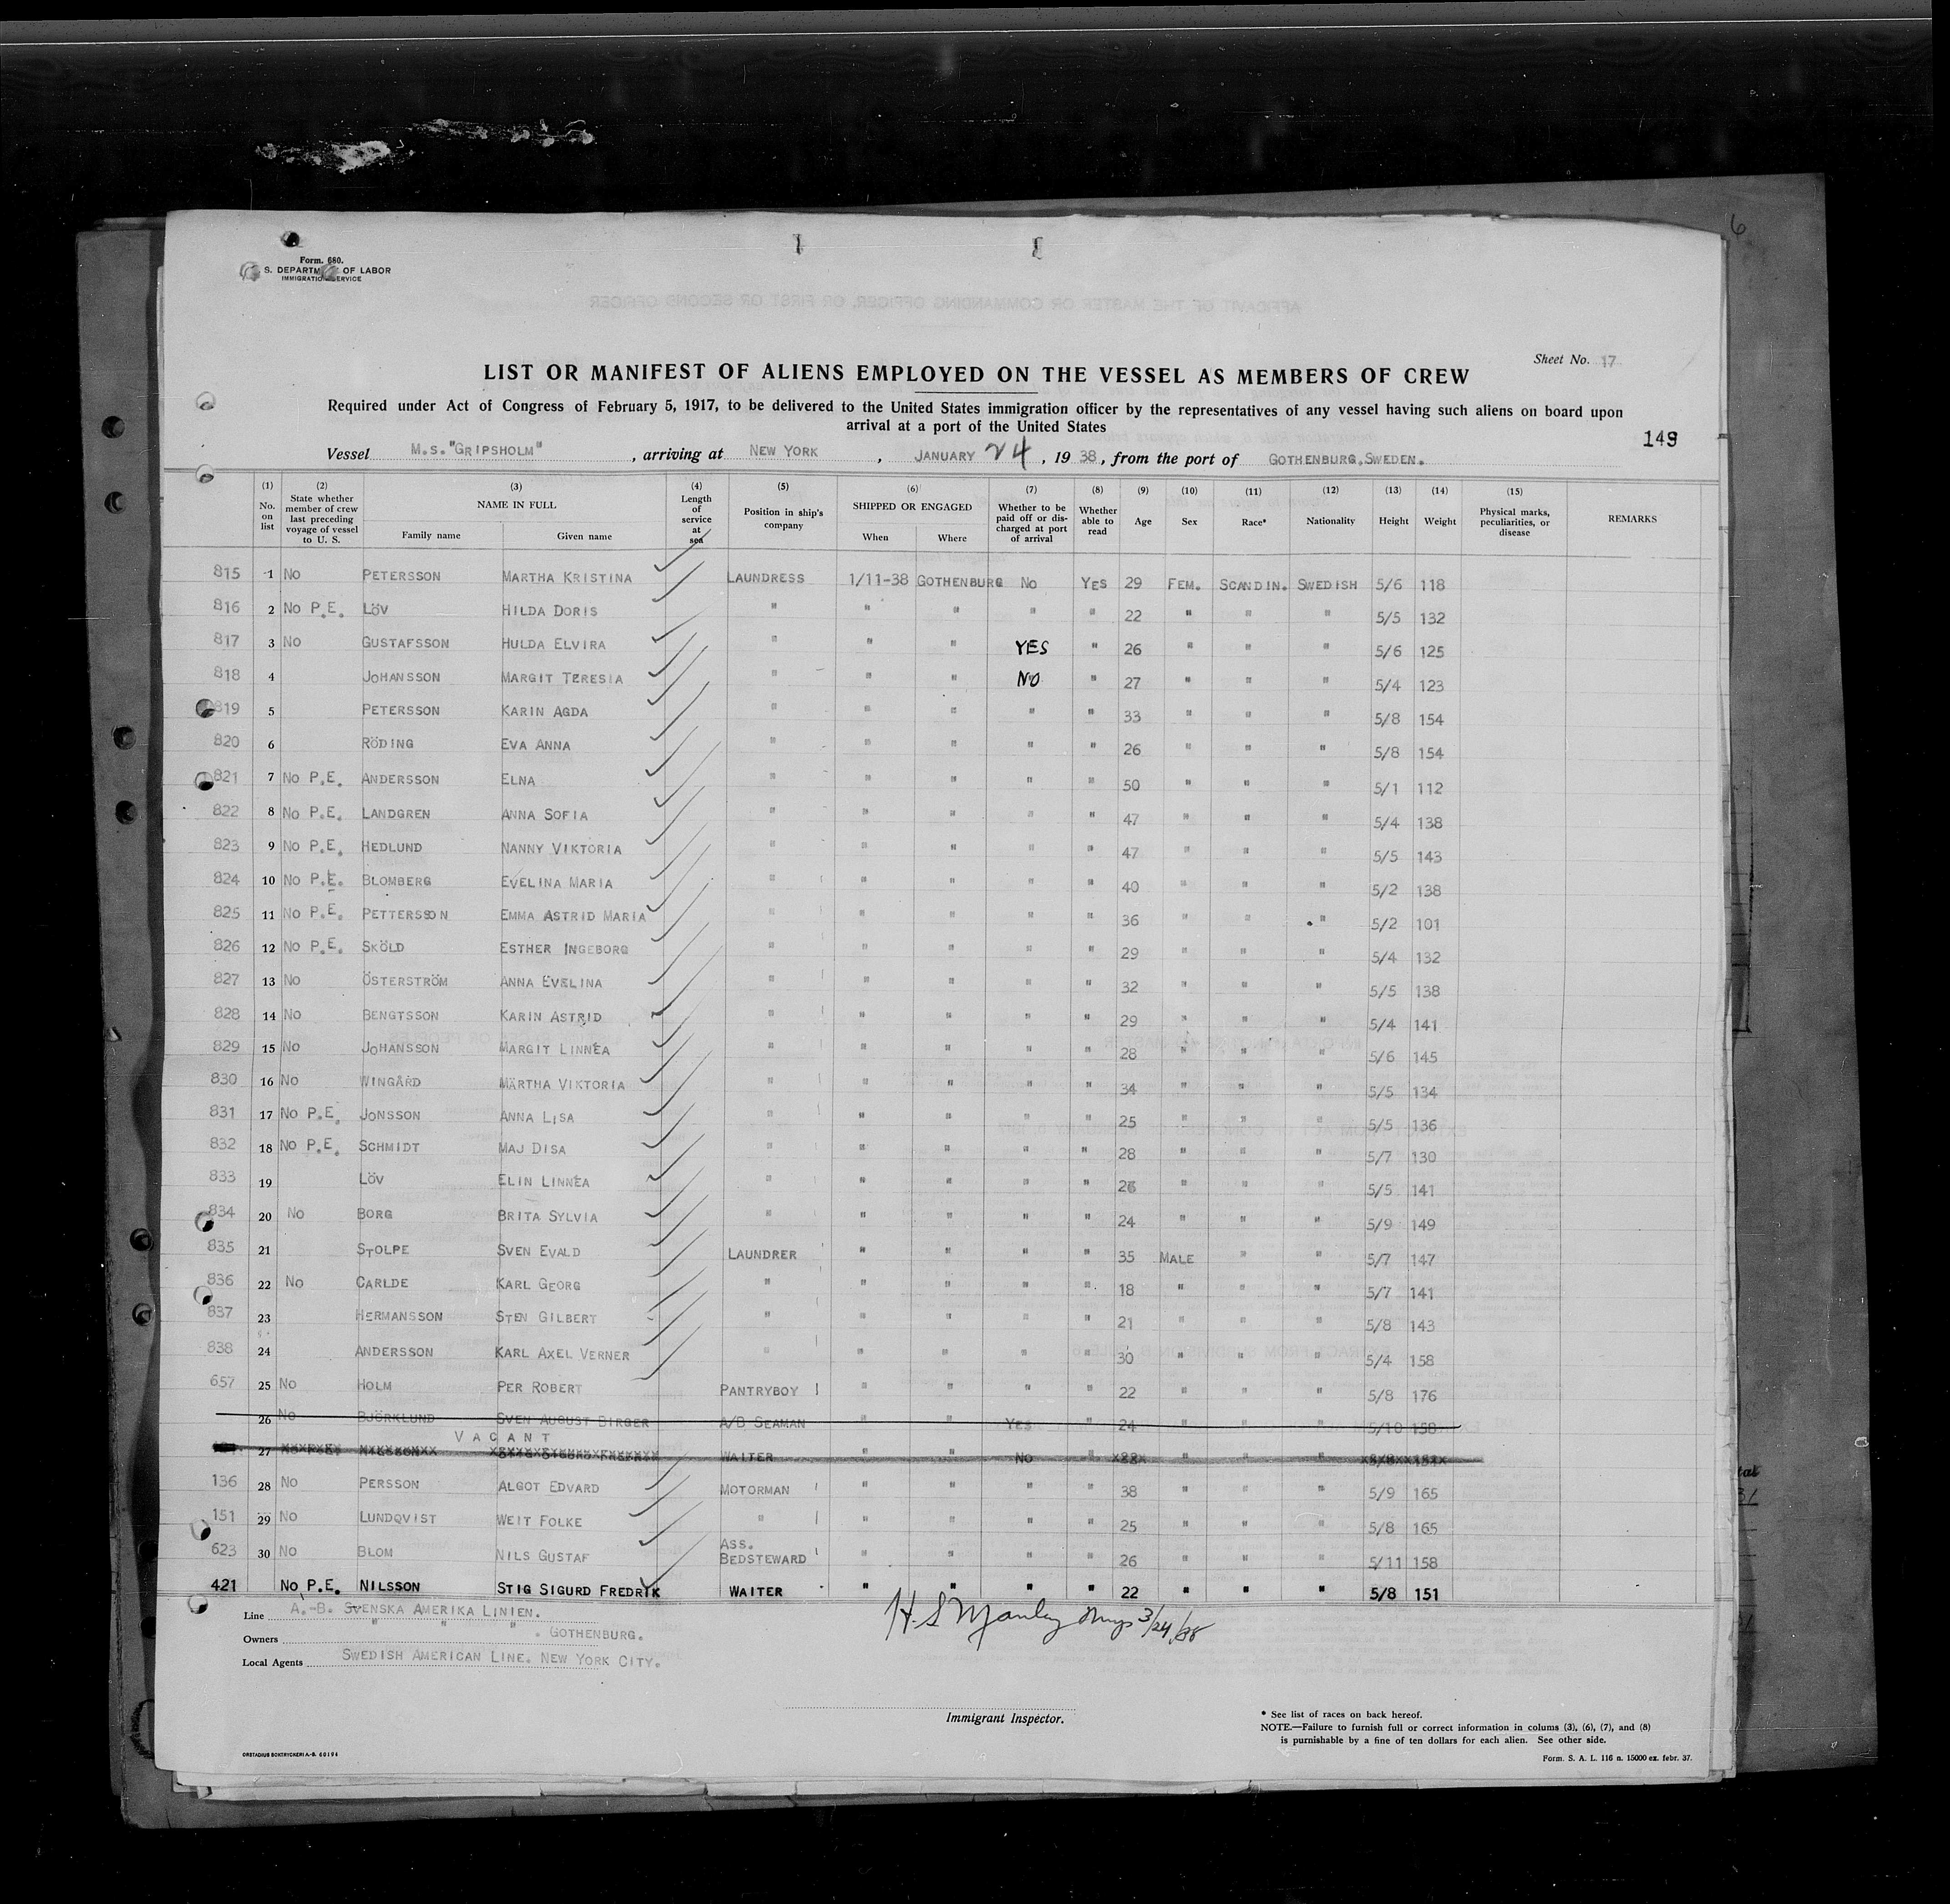 6
Form. 680.
S. DEPARTM OF LABOR
IMMIGRATION SERVICE
Sheet No. 17
LIST OR MANIFEST OF ALIENS EMPLOYED ON THE VESSEL AS MEMBERS OF CREW
Required under Act of Congress of February 5, 1917, to be delivered to the United States immigration officer by the representatives of any vessel having such aliens on board upon
arrival at a port of the United States
149
Vessel M.S."GRIPSHOLM", arriving at NEW YORK, JANUARY 24, 1938, from the port of GOTHENBURG.SWEDEN.
(1) No. on list (2) State whether member of crew last preceding voyage of vessel to U. S. (3) NAME IN FULL Family name Given name (4) Length of service at sea (5) Position in ship's company (6) SHIPPED OR ENGAGED When Where (7) Whether to be paid off or discharged at port of arrival (8) Whether able to read (9) Age (10) Sex (11) Race* (12) Nationality (13) Height (14) Weight (15) Physical marks, peculiarities, or disease REMARKS
815 1 NO PETERSSON MARTHA KRISTINA LAUNDRESS 1/11-38 GOTHENBURG NO YES 29 FEM. SCANDIN. SWEDISH 5/6 118
816 2 NO P.E. LÖV HILDA DORIS " " " " " 22 " " " 5/5 132
817 3 NO GUSTAFSSON HULDA ELVIRA " " " YES " 26 " " " 5/6 125
818 4 JOHANSSON MARGIT TERESIA " " " NO " 27 " " " 5/4 123
819 5 PETERSSON KARIN AGDA " " " " " 33 " " " 5/8 154
820 6 RÖDING EVA ANNA " " " " " 26 " " " 5/8 154
821 7 NO P.E. ANDERSSON ELNA " " " " " 50 " " " 5/1 112
822 8 NO P.E. LANDGREN ANNA SOFIA " " " " " 47 " " " 5/4 138
823 9 NO P.E. HEDLUND NANNY VIKTORIA " " " " 47 " " " 5/5 143
824 10 NO P.E. BLOMBERG EVELINA MARIA " " " " " 40 " " " 5/2 138
825 11 NO P.E. PETTERSSON EMMA ASTRID MARIA " " " " " 36 " " " 5/2 101
826 12 NO P.E. SKÖLD ESTHER INGEBORG " " " " " 29 " " " 5/4 132
827 13 NO ÖSTERSTRÖM ANNA EVELINA " " " " " 32 " " " 5/5 138
828 14 NO BENGTSSON KARIN ASTRID " " " " " 29 " " " 5/4 141
829 15 NO JOHANSSON MARGIT LINNÉA " " " " " 28 " " " 5/6 145
830 16 NO WINGÅRD MÄRTHA VIKTORIA " " " " " 34 " " " 5/5 134
831 17 NO P.E. JONSSON ANNA LISA " " " " " 25 " " " 5/5 136
832 18 NO P.E. SCHMIDT MAJ DISA " " " " " 28 " " " 5/7 130
833 19 LÖV ELIN LINNÉA " " " " " " " " 5/5 141
834 20 NO BORG BRITA SYLVIA " " " " " 24 " " " 5/9 149
835 21 STOLPE SVEN EVALD LAUNDRER " " " " 35 MALE " " 5/7 147
836 22 NO CARLDE KARL GEORG " " " " " 18 " " " 5/7 141
837 23 HERMANSSON STEN GILBERT " " " " " 21 " " " 5/8 143
838 24 ANDERSSON KARL AXEL VERNER " " " " " 30 " " " 5/4 158
657 25 NO HOLM PER ROBERT PANTRYBOY " " " " 22 " " " 5/8 176
26 NO BJÖRKLUND SVEN AUGUST BIRGER A/B SEAMAN " " YES " 24 " " " 5/10 158
VACANT
27 WAITER " " NO " " " "
136 28 NO PERSSON ALGOT EDVARD MOTORMAN " " " " 38 " " " 5/9 165
151 29 NO LUNDQVIST WEIT FOLKE " " " " " 25 " " " 5/8 165
623 30 NO BLOM NILS GUSTAF ASS. BEDSTEWARD " " " " 26 " " " 5/11 158
421 NO P.E. NILSSON STIG SIGURD FREDRIK WAITER " " " " 22 " " " 5/8 151
Line A.-B. SVENSKA AMERIKA LINIEN.
Owners " " " . GOTHENBURG.
Local Agents SWEDISH AMERICAN LINE. NEW YORK CITY.
H. S Manley 3/24/38
Immigrant Inspector.
* See list of races on back hereof.
NOTE.—Failure to furnish full or correct information in colums (3), (6), (7), and (8)
is punishable by a fine of ten dollars for each alien. See other side.
ORSTADIUS BOKTRYCKERI A.-B. 60194
Form. S. A. L. 116 n. 15000 ex. febr. 37.